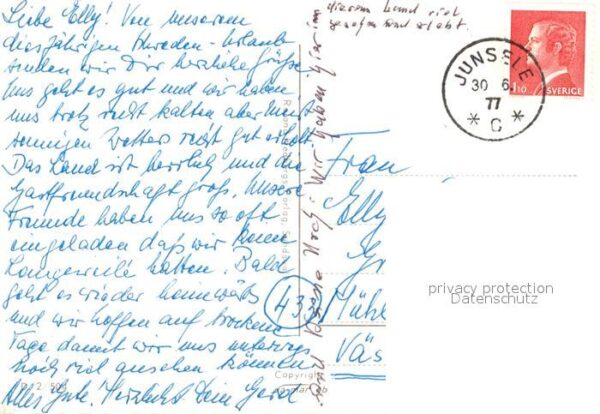 Liebe Elly! Von unserem
diesjährigen Schweden-Urlaub
senden wir Dir herzliche Grüße
Uns geht es gut und wir haben
uns trotz recht kalten aber meist
sonnigen Wetters recht gut erholt
Das Land ist herrlich und die
Gastfreundschaft groß. Unsere
Freunde haben uns so oft
eingeladen daß wir keine
Langeweile hatten. Bald
geht es wieder heimwärts
und wir hoffen auf trockene
Tage damit wir uns unterwegs
noch viel ansehen können
Alles Gute. Herzlichst Dein Gerd
Wir haben hier in
diesem Land viel
gesehen und erlebt.
JUNSELE
30 6
77
* C *
1.10 SVERIGE
Frau
Elly
433
Mühl
Väs
Copyright
privacy protection
Datenschutz